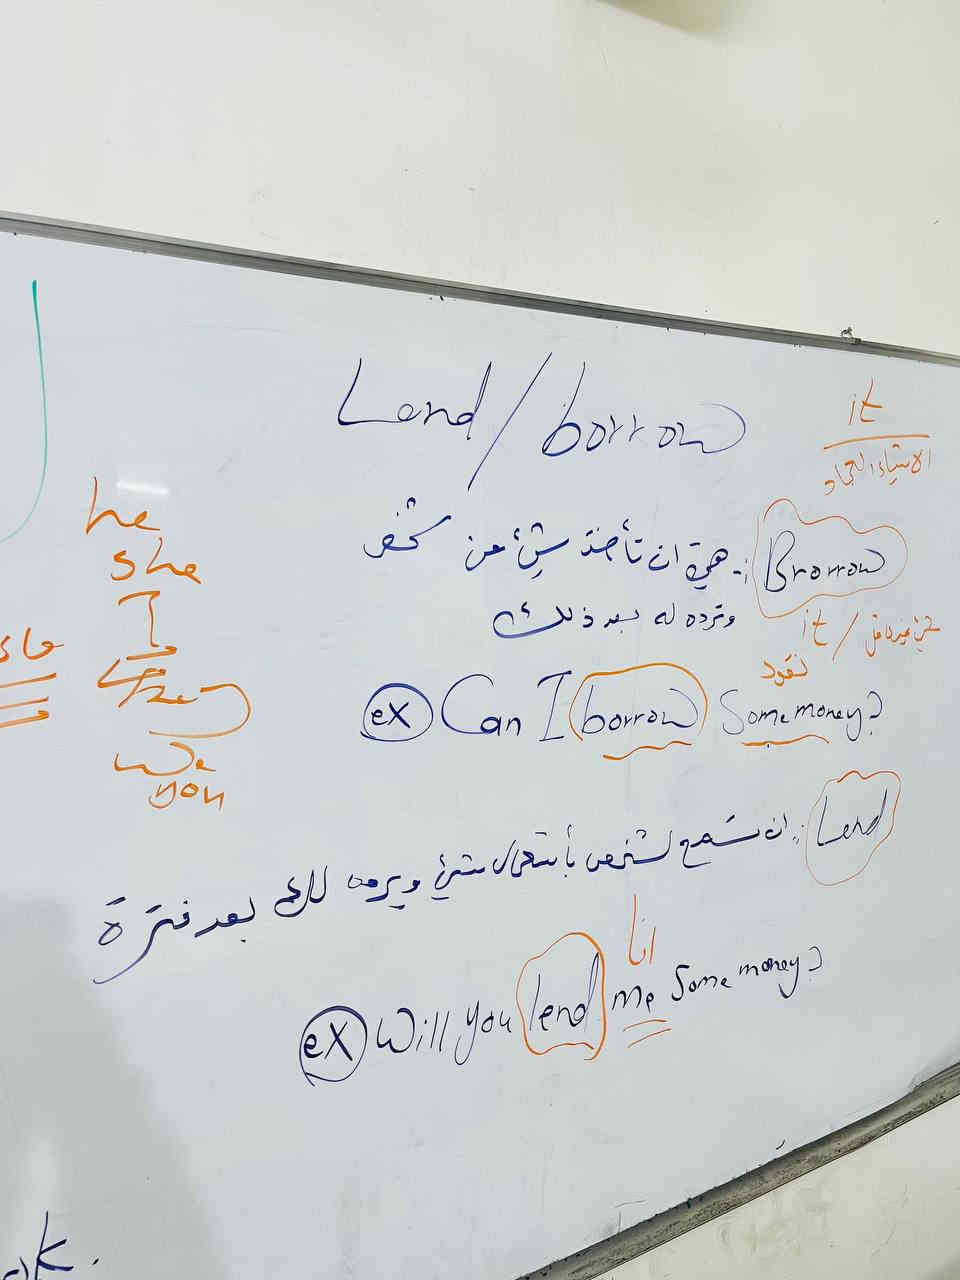 Lend / borrow
it
الاشياء الجماد
Brorrow :- هي ان تأخذ شئ من شخص
وترده له بعد ذلك
it / شئ غير عاقل
نقود
ex Can I borrow Some money?
Lend :- ان تسمح لشخص بأستعمال شئ ويرده لك بعد فترة
انا
ex Will you lend me Some money?
he
she
I
they
We
you